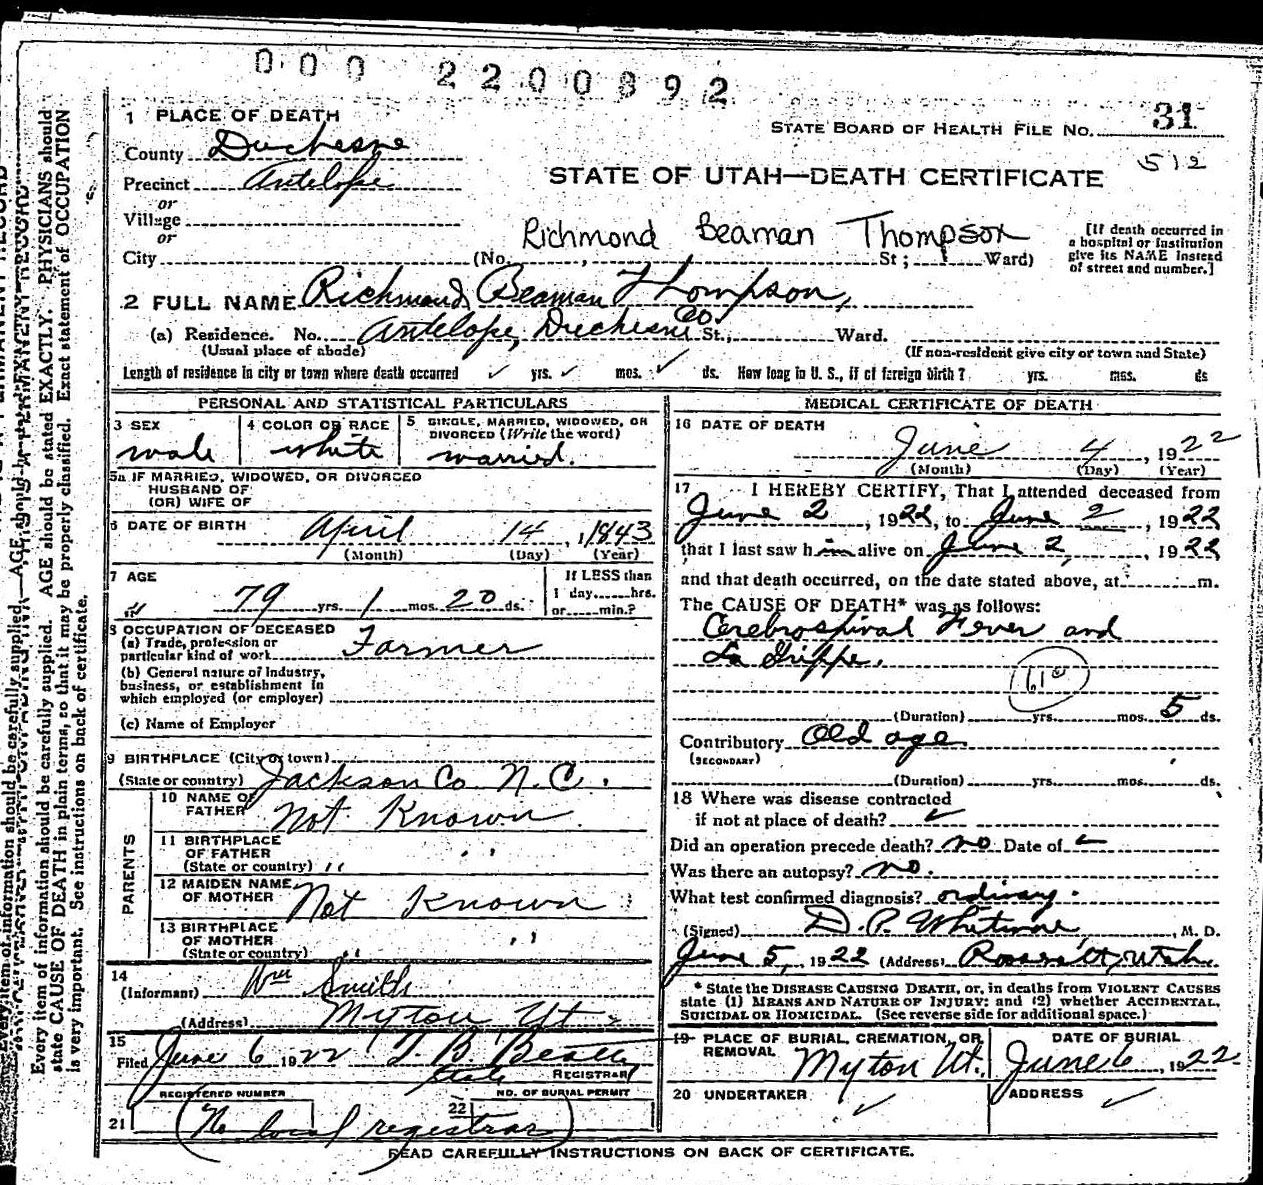 000 2200892
1 PLACE OF DEATH
STATE BOARD OF HEALTH FILE NO. 31
County Duchesne
512
Precinct Antelope
STATE OF UTAH—DEATH CERTIFICATE
or
Village
or
Richmond Beaman Thompson
[If death occurred in a hospital or institution give its NAME instead of street and number.]
City (No. , St; Ward)
2 FULL NAME Richmond Beaman Thompson,
(a) Residence. No. Antelope, Duchesne Co. St., Ward.
(Usual place of abode) (If non-resident give city or town and State)
Length of residence in city or town where death occurred ✓ yrs. ✓ mos. ✓ ds. How long in U. S., if of foreign birth? yrs. mos. ds
PERSONAL AND STATISTICAL PARTICULARS
3 SEX
male
4 COLOR OR RACE
white
5 SINGLE, MARRIED, WIDOWED, OR DIVORCED (Write the word)
married.
5a IF MARRIED, WIDOWED, OR DIVORCED
HUSBAND OF
(OR) WIFE OF
6 DATE OF BIRTH
April 14, 1843
(Month) (Day) (Year)
7 AGE
79 yrs. 1 mos. 20 ds.
If LESS than
1 day hrs.
or min.?
8 OCCUPATION OF DECEASED
(a) Trade, profession or
particular kind of work Farmer
(b) General nature of industry,
business, or establishment in
which employed (or employer)
(c) Name of Employer
9 BIRTHPLACE (City or town)
(State or country) Jackson Co. N.C.
PARENTS
10 NAME OF
FATHER Not Known
11 BIRTHPLACE
OF FATHER
(State or country) " "
12 MAIDEN NAME
OF MOTHER Not Known
13 BIRTHPLACE
OF MOTHER
(State or country) " "
14
(Informant) Wm Smith
(Address) Myton Ut
15
Filed June 6 1922
REGISTRAR
REGISTERED NUMBER
NO. OF BURIAL PERMIT
21
22
(No local registrar)
MEDICAL CERTIFICATE OF DEATH
16 DATE OF DEATH
June 4, 1922
(Month) (Day) (Year)
17 I HEREBY CERTIFY, That I attended deceased from
June 2, 1922, to June 2, 1922
that I last saw him alive on June 2, 1922
and that death occurred, on the date stated above, at m.
The CAUSE OF DEATH* was as follows:
Cerebrospinal Fever and
La Grippe.
(Duration) yrs. mos. 5 ds.
Contributory Old age
(SECONDARY)
(Duration) yrs. mos. ds.
18 Where was disease contracted
if not at place of death? ✓
Did an operation precede death? no Date of
Was there an autopsy? no.
What test confirmed diagnosis? ordinary.
(Signed) D. P. Whitmore, M. D.
June 5, 1922 (Address) Utah.
* State the DISEASE CAUSING DEATH, or, in deaths from VIOLENT CAUSES
state (1) MEANS AND NATURE OF INJURY; and (2) whether ACCIDENTAL,
SUICIDAL OR HOMICIDAL. (See reverse side for additional space.)
19 PLACE OF BURIAL, CREMATION, OR
REMOVAL Myton Ut.
DATE OF BURIAL
June 6, 1922
20 UNDERTAKER
✓
ADDRESS
✓
READ CAREFULLY INSTRUCTIONS ON BACK OF CERTIFICATE.
Every item of information should be carefully supplied. AGE should be stated EXACTLY. PHYSICIANS should
state CAUSE OF DEATH in plain terms, so that it may be properly classified. Exact statement of OCCUPATION
is very important. See instructions on back of certificate.